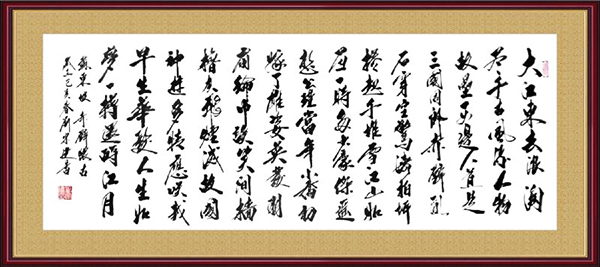 大江東去浪淘
盡千古風流人物
故壘西邊人道是
三國周郎赤壁亂
石穿空驚濤拍岸
捲起千堆雪江山如
畫一時多少豪傑遥
想公瑾當年小喬初
嫁了雄姿英發羽
扇綸巾談笑間檣
櫓灰飛煙滅故國
神遊多情應笑我
早生華髮人生如
夢一樽還酹江月
蘇東坡赤壁懷古
書